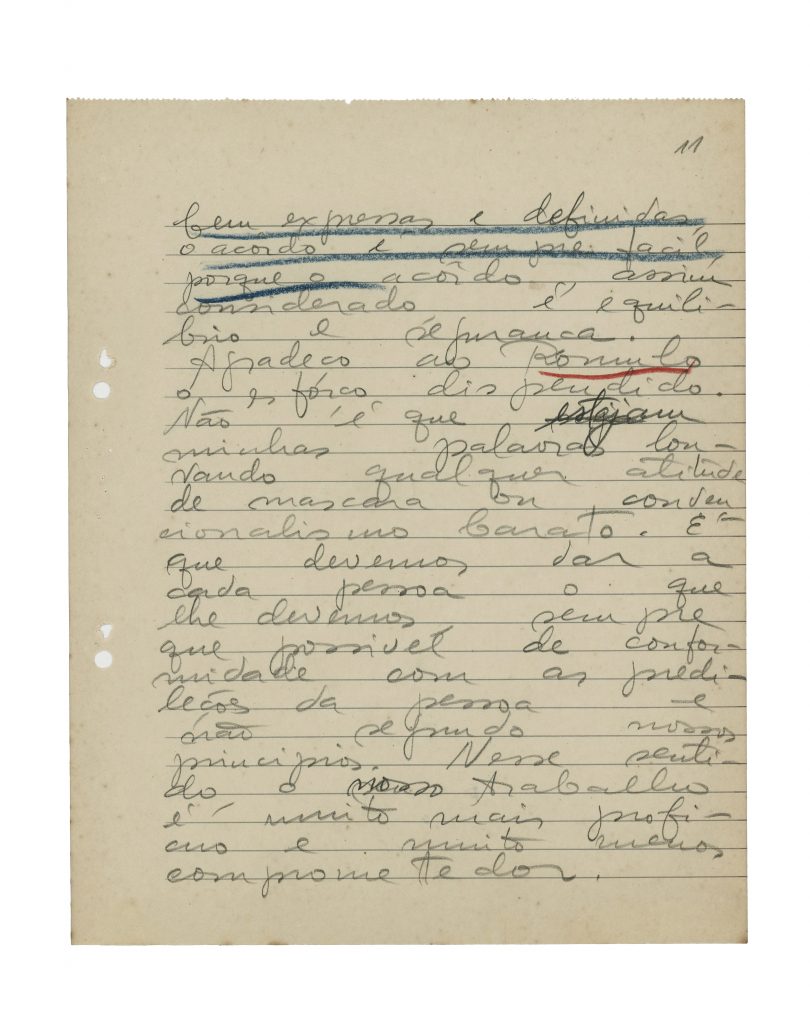 11
bem expressas e definidas,
o acôrdo é sempre facil
porque o acôrdo, assim
considerado é equili-
brio e segurança.
Agradeço ao Romulo
o esfôrço dispendido.
Não é que estejam
minhas palavras lou-
vando qualquer atitude
de mascara ou conven
cionalismo barato. É
que devemos dar a
cada pessoa o que
lhe devemos, sempre
que possivel de confor-
midade com as predi-
leções da pessoa e
não segundo nossos
principios. Nesse senti-
do o nosso trabalho
é muito mais profi-
cuo e muito menos
comprometedor.